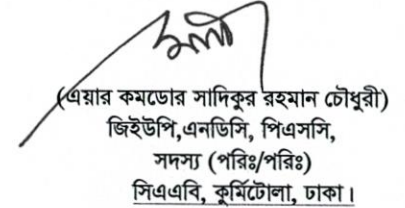 (এয়ার কমডোর সাদিকুর রহমান চৌধুরী)
জিইউপি,এনডিসি, পিএসসি,
সদস্য (পরিঃ/পরিঃ)
সিএএবি, কুর্মিটোলা, ঢাকা।